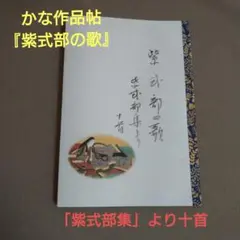 かな作品帖
『紫式部の歌』
紫式部の歌
紫式部集より
十首
「紫式部集」より十首